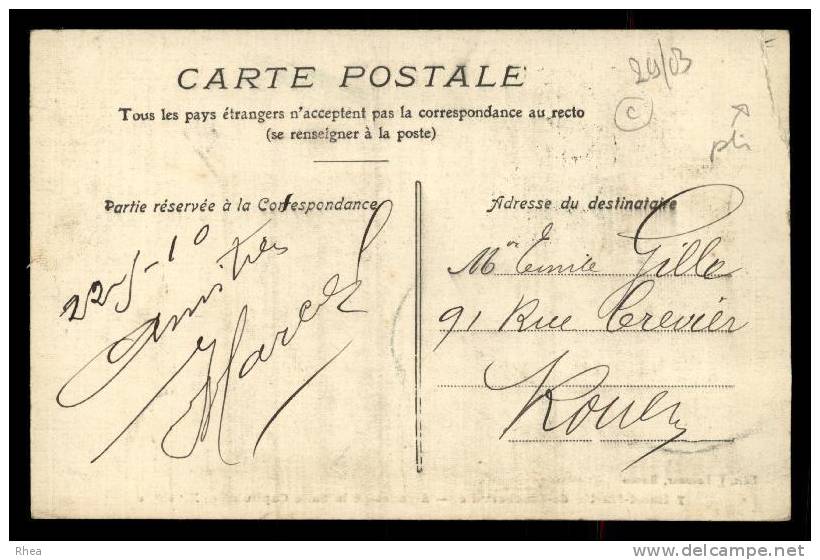 29/03
CARTE POSTALE
C
Tous les pays étrangers n'acceptent pas la correspondance au recto
(se renseigner à la poste)
pli
Partie réservée à la Correspondance
Adresse du destinataire
22-5-10
Amitiés
Marcel
Mr Emile Gille
91 Rue Crevier
Rouen
Rhea
http://www.delcampe.net